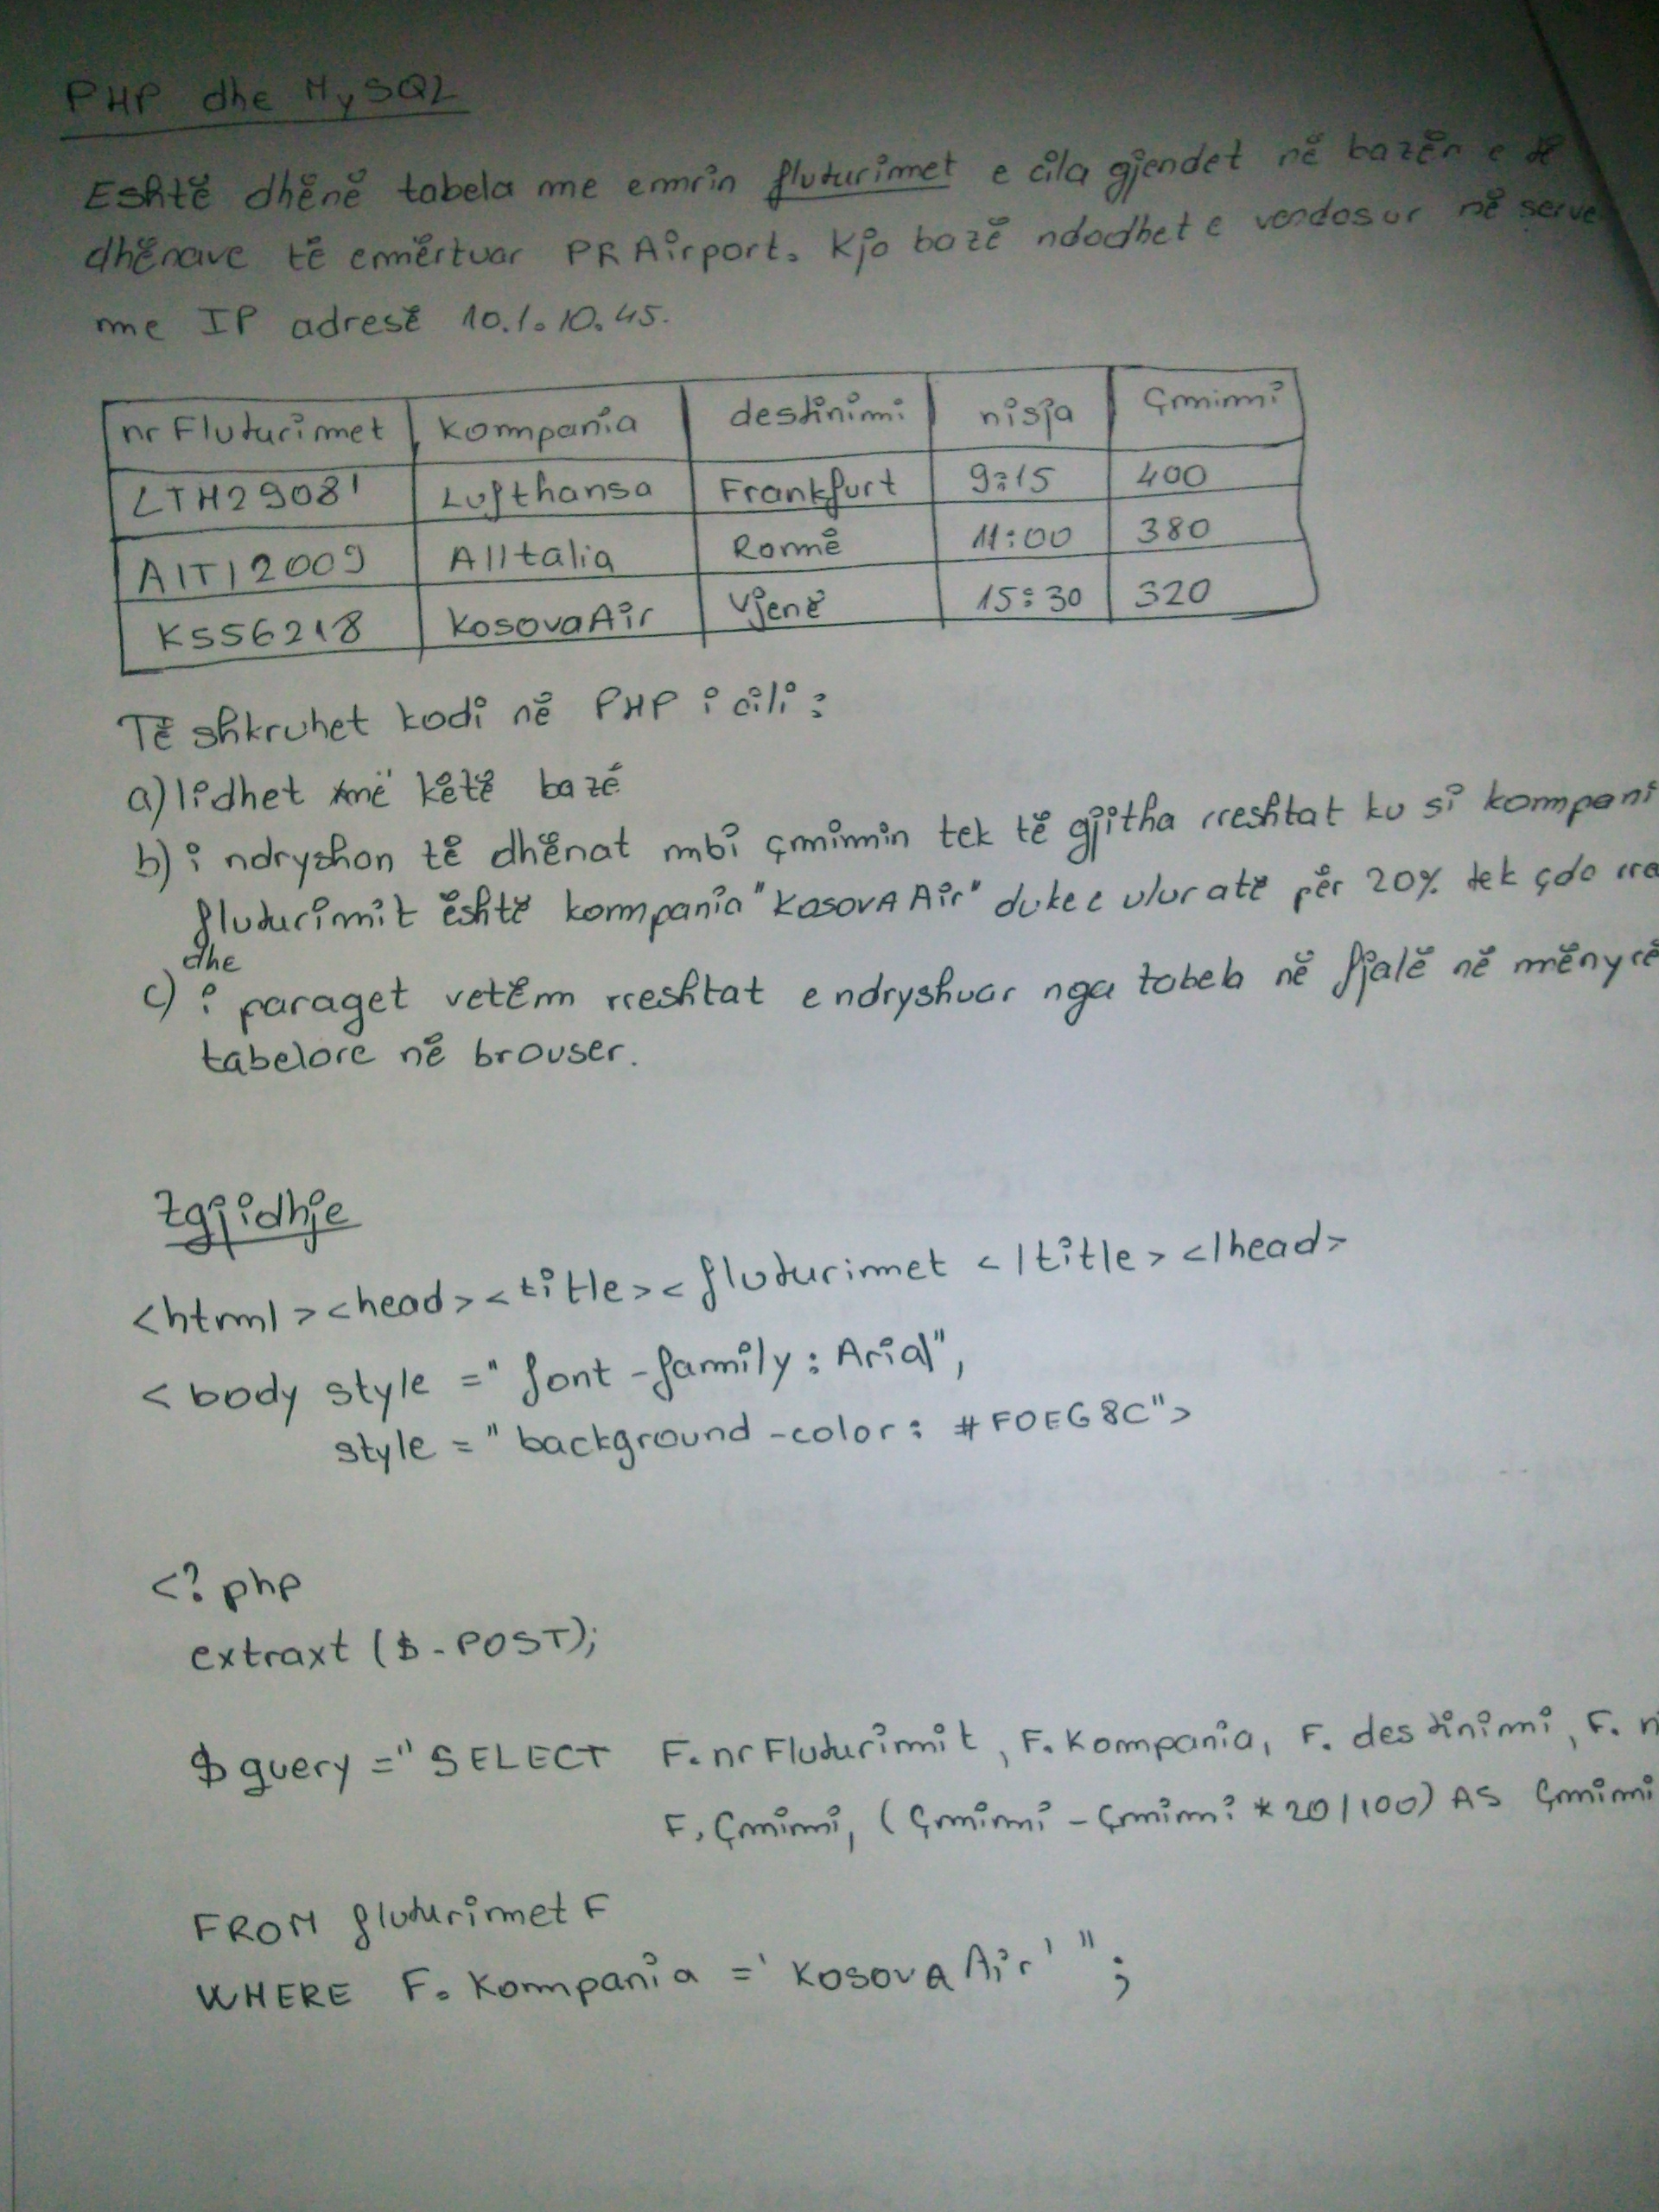 PHP dhe MySQL
Eshtë dhënë tabela me emrin fluturimet e cila gjendet në bazën e të
dhënave të emërtuar PRAirport. Kjo bazë ndodhet e vendosur në serve
me IP adresë 10.1.10.45.
nrFluturimet kompania destinimi nisja Çmimi
LTH29081 Lufthansa Frankfurt 9:15 400
AITI2009 AlItalia Romë 11:00 380
KS56218 KosovaAir Vjenë 15:30 320
Të shkruhet kodi në PHP i cili:
a) lidhet më këtë bazë
b) i ndryshon të dhënat mbi çmimin tek të gjitha rreshtat ku si kompani
fluturimit është kompania "KosovA Air" duke e ulur atë për 20% tek çdo rre
dhe
c) i paraget vetëm rreshtat e ndryshuar nga tabela në fjalë në mënyrë
tabelore në brouser.
Zgjidhje
<html><head><title>< fluturimet </title></head>
<body style = "font-family: Arial",
style = "background-color: #F0EG8C">
<? php
extraxt ($-POST);
$query = "SELECT F.nrFluturimit, F.Kompania, F.destinimi, F.n
F.Çmimi, (Çmimi - Çmimi * 20/100) AS Çmimi
FROM fluturimet F
WHERE F.Kompania = 'Kosova Air' ";